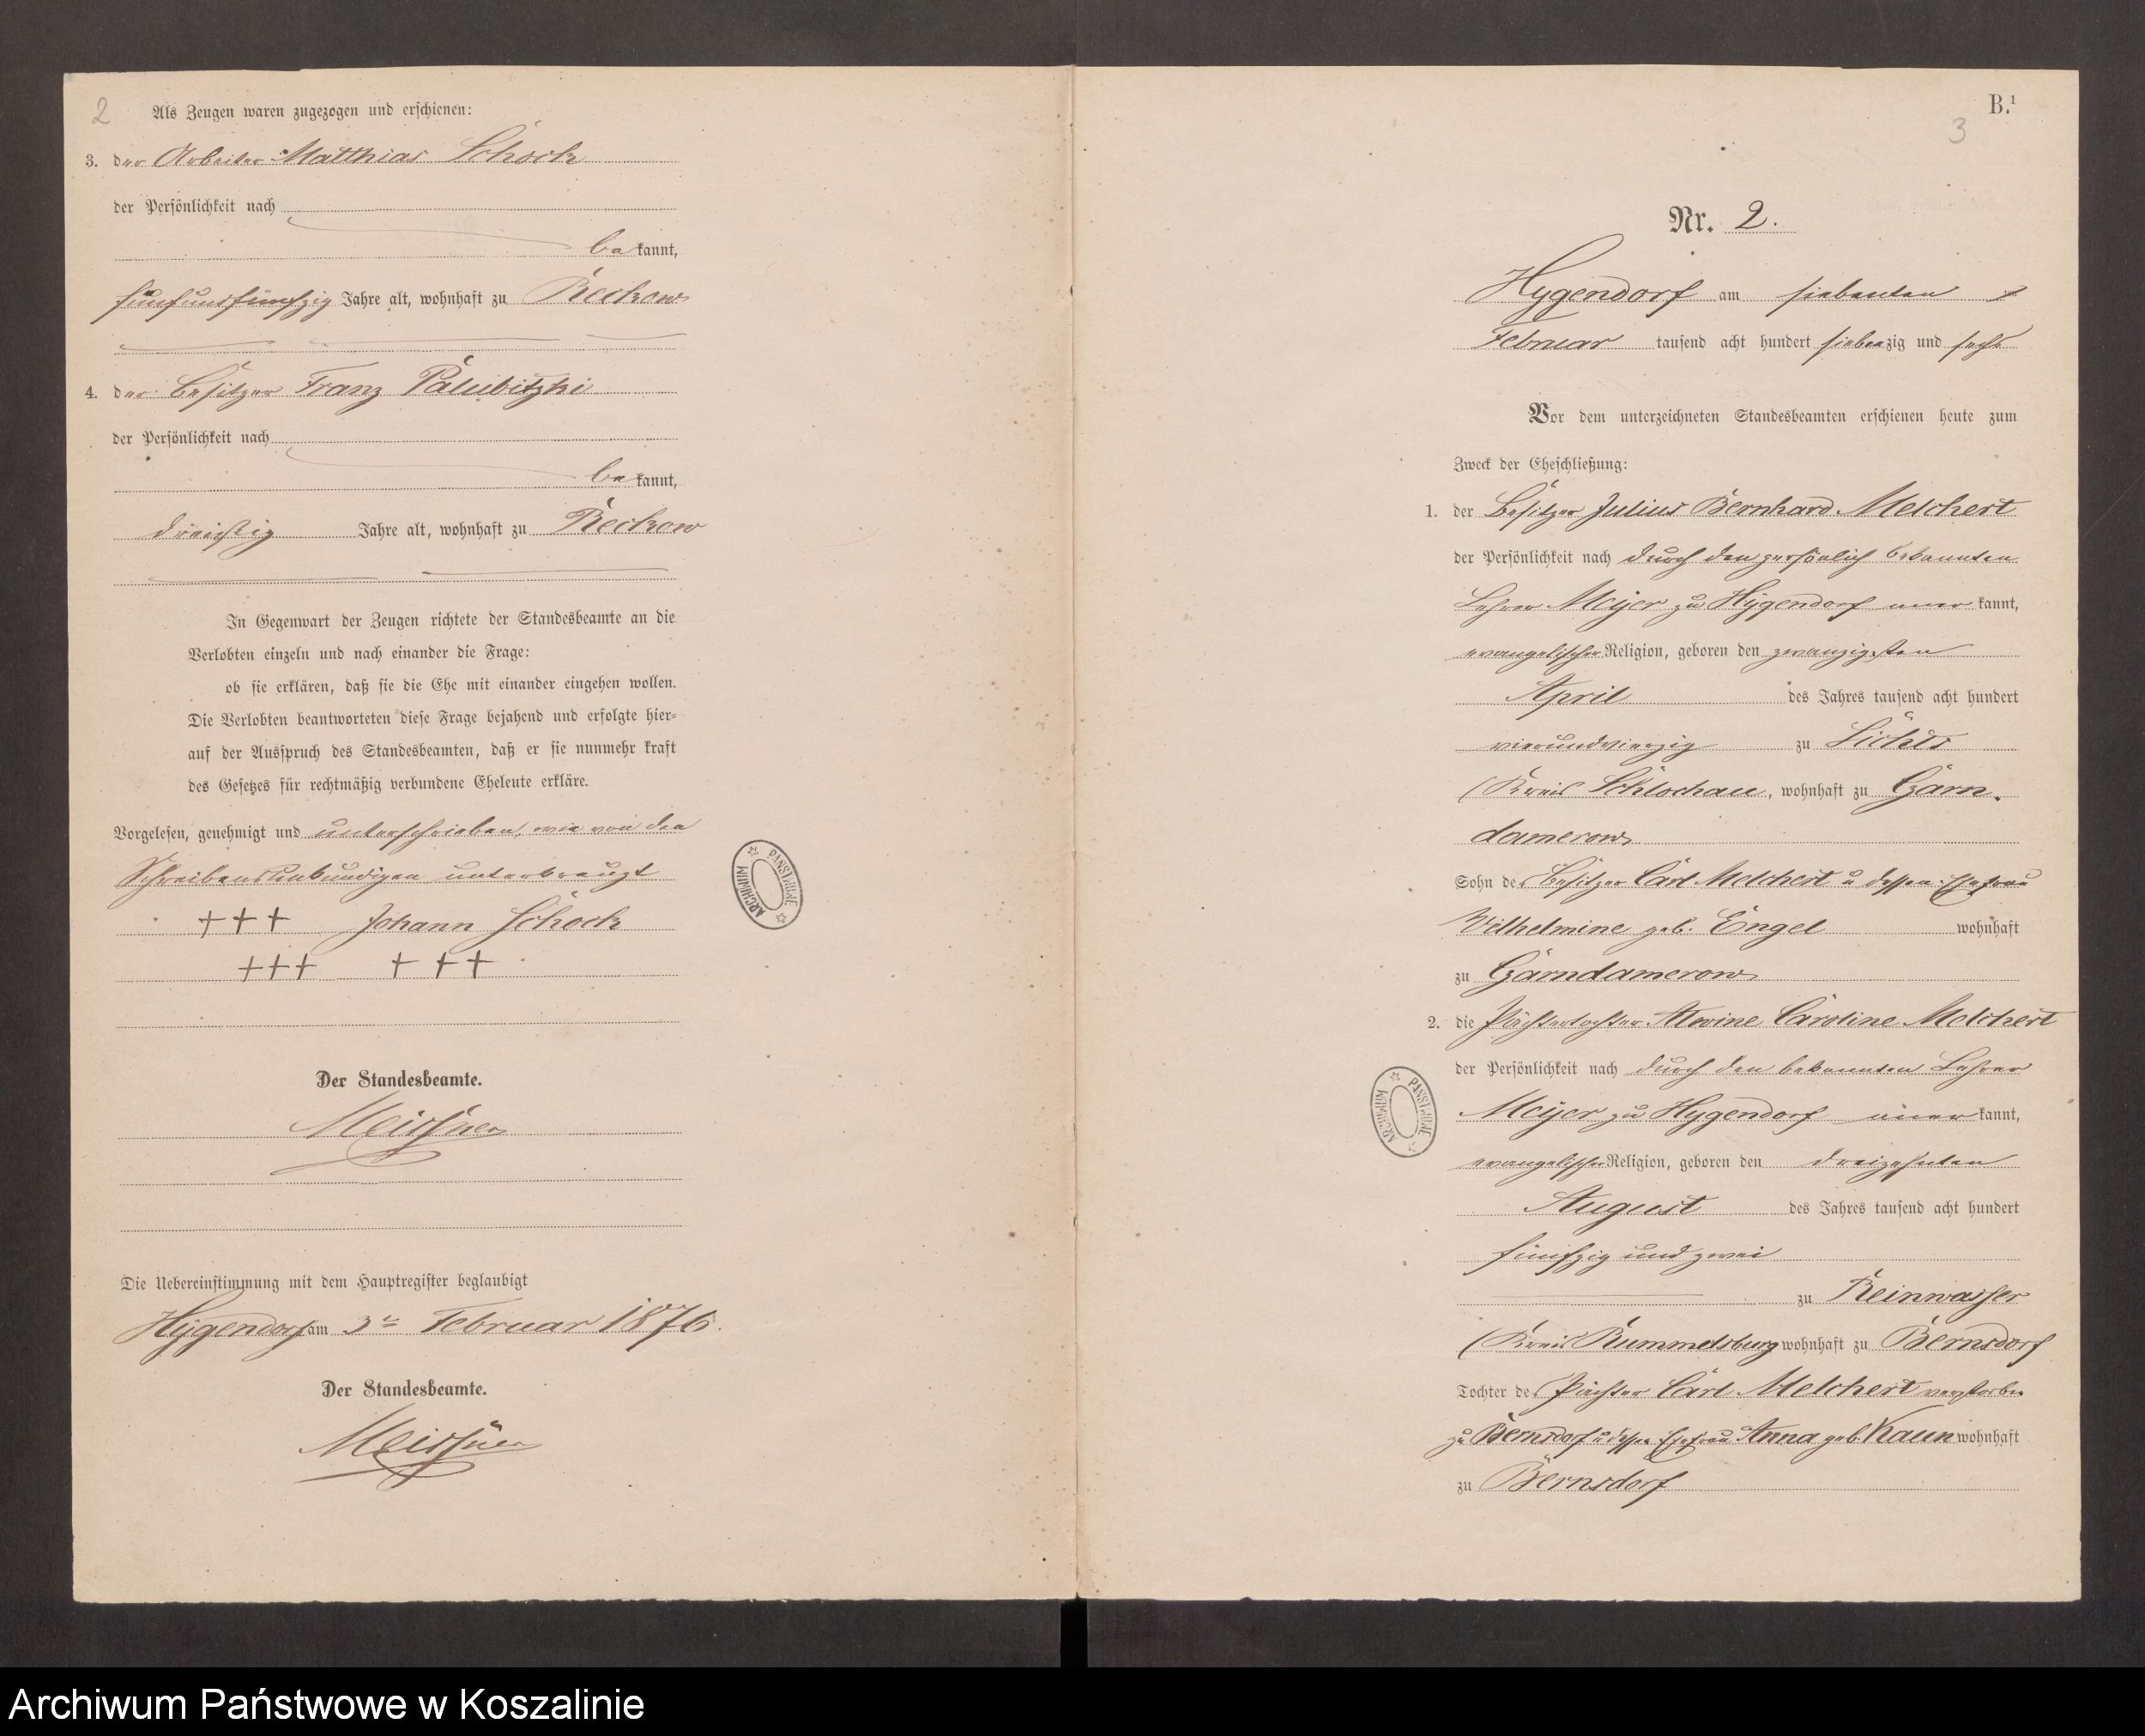 2
Als Zeugen waren zugezogen und erschienen:
3. der Arbeiter Matthias Schock
der Persönlichkeit nach
bekannt,
fünfundfünfzig Jahre alt, wohnhaft zu Reckow
4. der Besitzer Franz Palubitzki
der Persönlichkeit nach
bekannt,
dreißig Jahre alt, wohnhaft zu Reckow
In Gegenwart der Zeugen richtete der Standesbeamte an die
Verlobten einzeln und nach einander die Frage:
ob sie erklären, daß sie die Ehe mit einander eingehen wollen.
Die Verlobten beantworteten diese Frage bejahend und erfolgte hier-
auf der Ausspruch des Standesbeamten, daß er sie nunmehr kraft
des Gesetzes für rechtmäßig verbundene Eheleute erkläre.
Vorgelesen, genehmigt und unterschrieben, wie von den
Schreibensunkundigen unterkreuzt
+++ Johann Schock
+++ +++
Der Standesbeamte.
Meissner
Die Uebereinstimmung mit dem Hauptregister beglaubigt
Hygendorf am 3ten Februar 1876.
Der Standesbeamte.
Meissner
ARCHIWUM PAŃSTWOWE
B.¹
3
Nr. 2.
Hygendorf am siebenten
Februar tausend acht hundert siebenzig und sechs
Vor dem unterzeichneten Standesbeamten erschienen heute zum
Zweck der Eheschließung:
1. der Besitzer Julius Bernhard Melchert
der Persönlichkeit nach durch den persönlich bekannten
Lehrer Meyer zu Hygendorf anerkannt,
evangelischer Religion, geboren den zwanzigsten
April des Jahres tausend acht hundert
vierundvierzig zu Sichts
(Kreis Schlochau, wohnhaft zu Garn-
damerow
Sohn des Besitzer Carl Melchert u dessen Ehefrau
Wilhelmine geb. Engel wohnhaft
zu Garndamerow
2. die Pächtertochter Alwine Caroline Melchert
der Persönlichkeit nach durch den bekannten Lehrer
Meyer zu Hygendorf anerkannt,
evangelischer Religion, geboren den dreizehnten
August des Jahres tausend acht hundert
fünfzig und zwei
zu Reinwasser
(Kreis Rummelsburg wohnhaft zu Bernsdorf
Tochter des Pächter Carl Melchert verstorben
zu Bernsdorf u dessen Ehefrau Anna geb. Kaun wohnhaft
zu Bernsdorf
ARCHIWUM PAŃSTWOWE
Archiwum Państwowe w Koszalinie